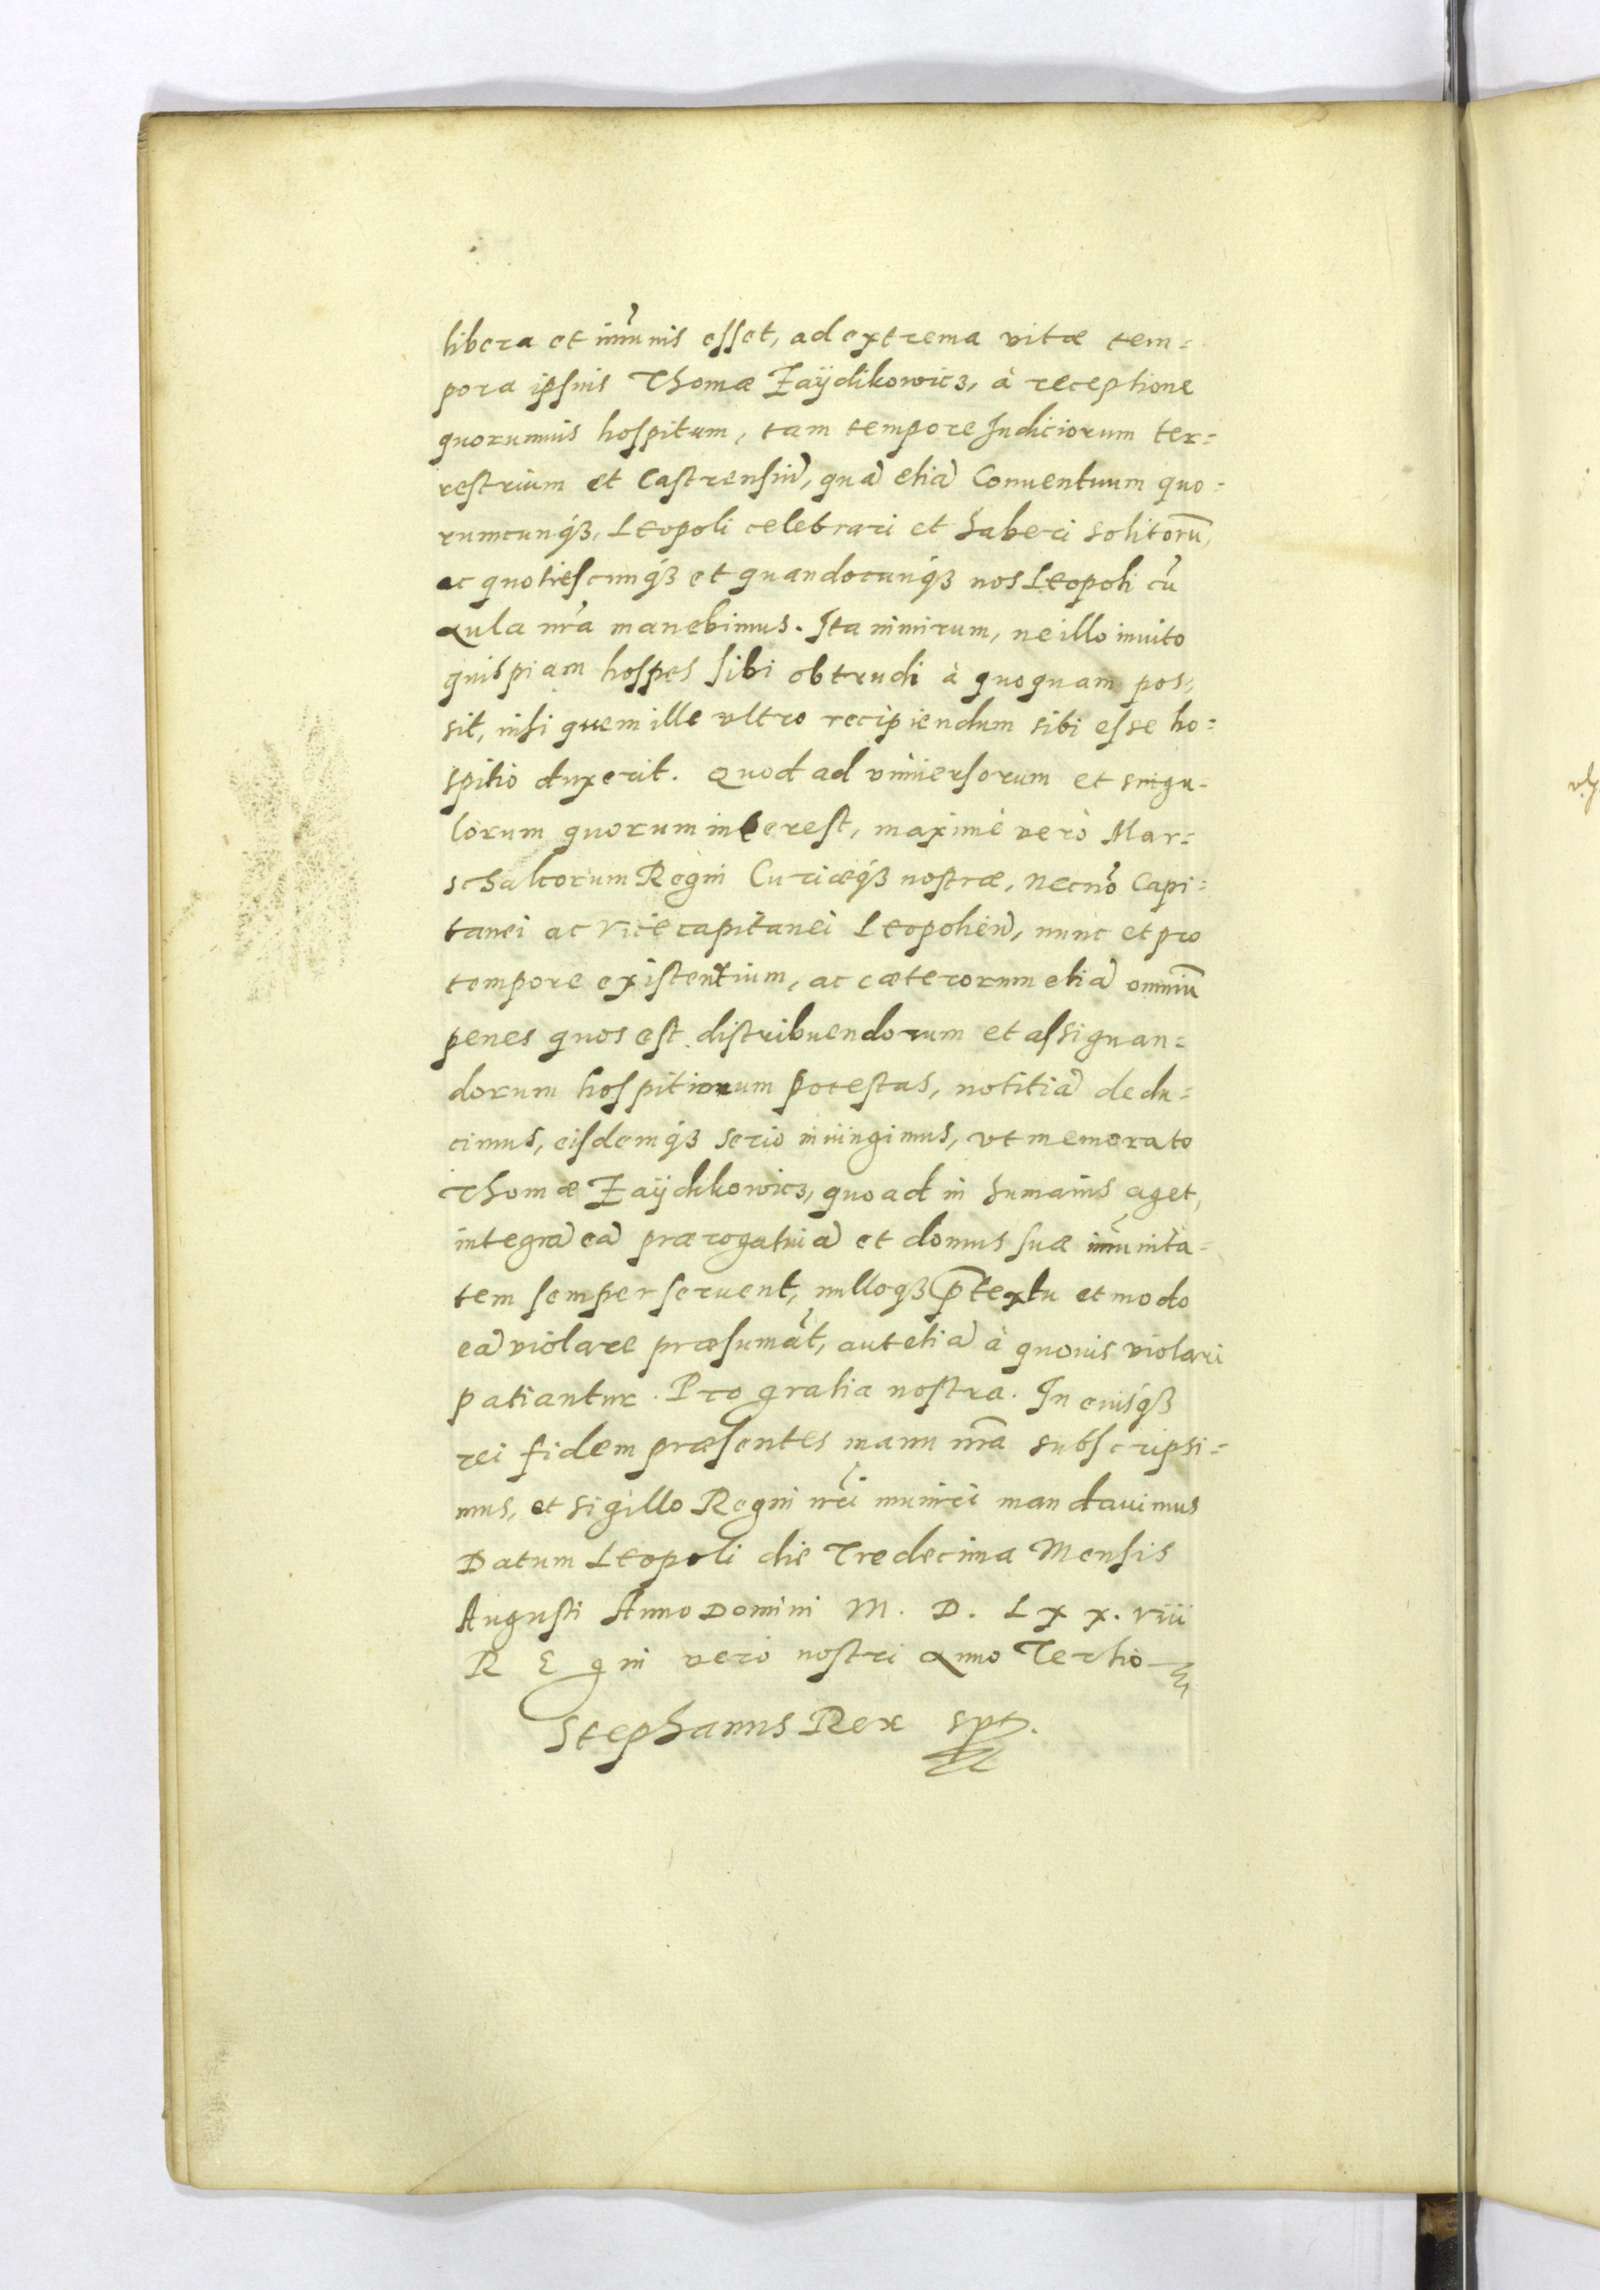 libera et im̃unis esset, ad extrema vitæ tem=
pora ipsius Thomæ Zaÿdikowicz, à receptione
quorumuis hospitum, tam tempore Iudiciorum ter=
restrium et Castrensiũ, quã etiã Conuentuum quo=
rumcunqꝫ, Leopoli celebrari et haberi solitorũ,
ac quotiescunqꝫ et quandocunqꝫ nos Leopoli cũ
Aula nr̃a manebimus. Ita nimirum, ne illo inuito
quispiam hospes sibi obtrudi à quoquam pos=
sit, nisi quem ille vltro recipiendum sibi esse ho=
spitio duxerit. Quod ad vniuersorum et singu=
lorum quorum interest, maximè verò Mar=
schalcorum Regni Curiæqꝫ nostræ, Necnõ Capi=
tanei ac Vicecapitanei Leopolieñ, nunc et pro
tempore existentium, ac cæterorum etiã omniũ
penes quos est distribuendorum et assignan=
dorum hospitiorum potestas, notitiã dedu=
cimus, eisdemqꝫ serio iniungimus, vt memorato
Thomæ Zaÿdikowicz, quoad in humanis aget,
integrã eã prærogatiuã et domus suæ im̃unita=
tem semper seruent, nulloqꝫ p̃textu et modo
eã violare præsumãt, aut etiã à quouis violari
patiantur. Pro gratia nostra. In cuiusqꝫ
rei fidem præsentes manu nr̃a subscripsi=
mus, et sigillo Regni nr̃i muniri mandauimus
Datum Leopoli die Tredecima Mensis
Augusti Anno Domini M. D. Lxx. viii
REgni vero nostri Anno Tertio
Stephanus Rex spt.